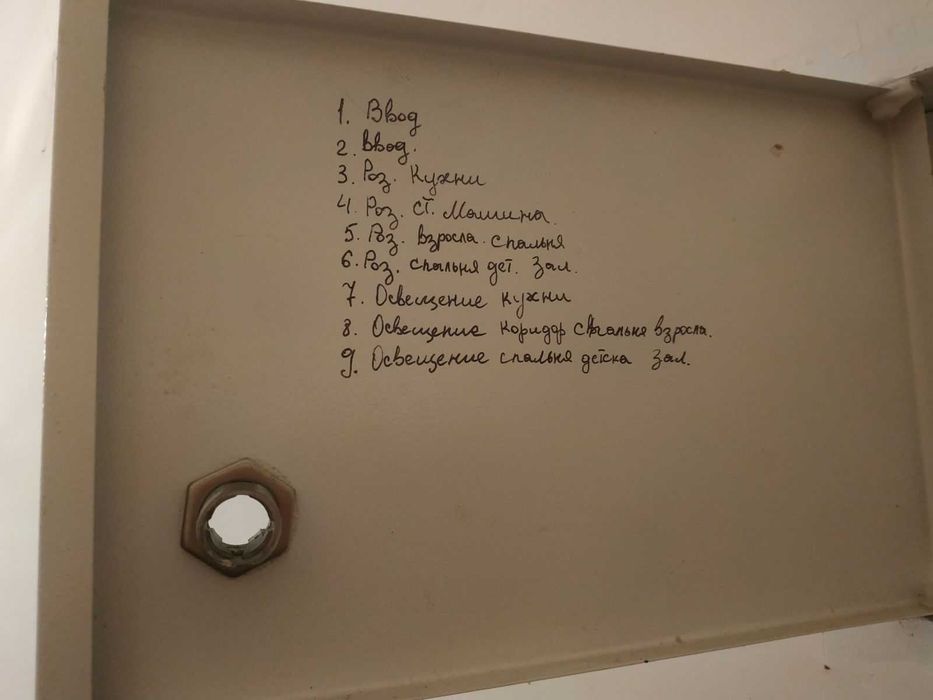 1. Ввод
2. Ввод.
3. Роз. Кухни
4. Роз. ст. Машина.
5. Роз. взросла. спальня
6. Роз. спальня дет. Зал.
7. Освещение кухни
8. Освещение коридор спальня взросла.
9. Освещение спальня детска Зал.